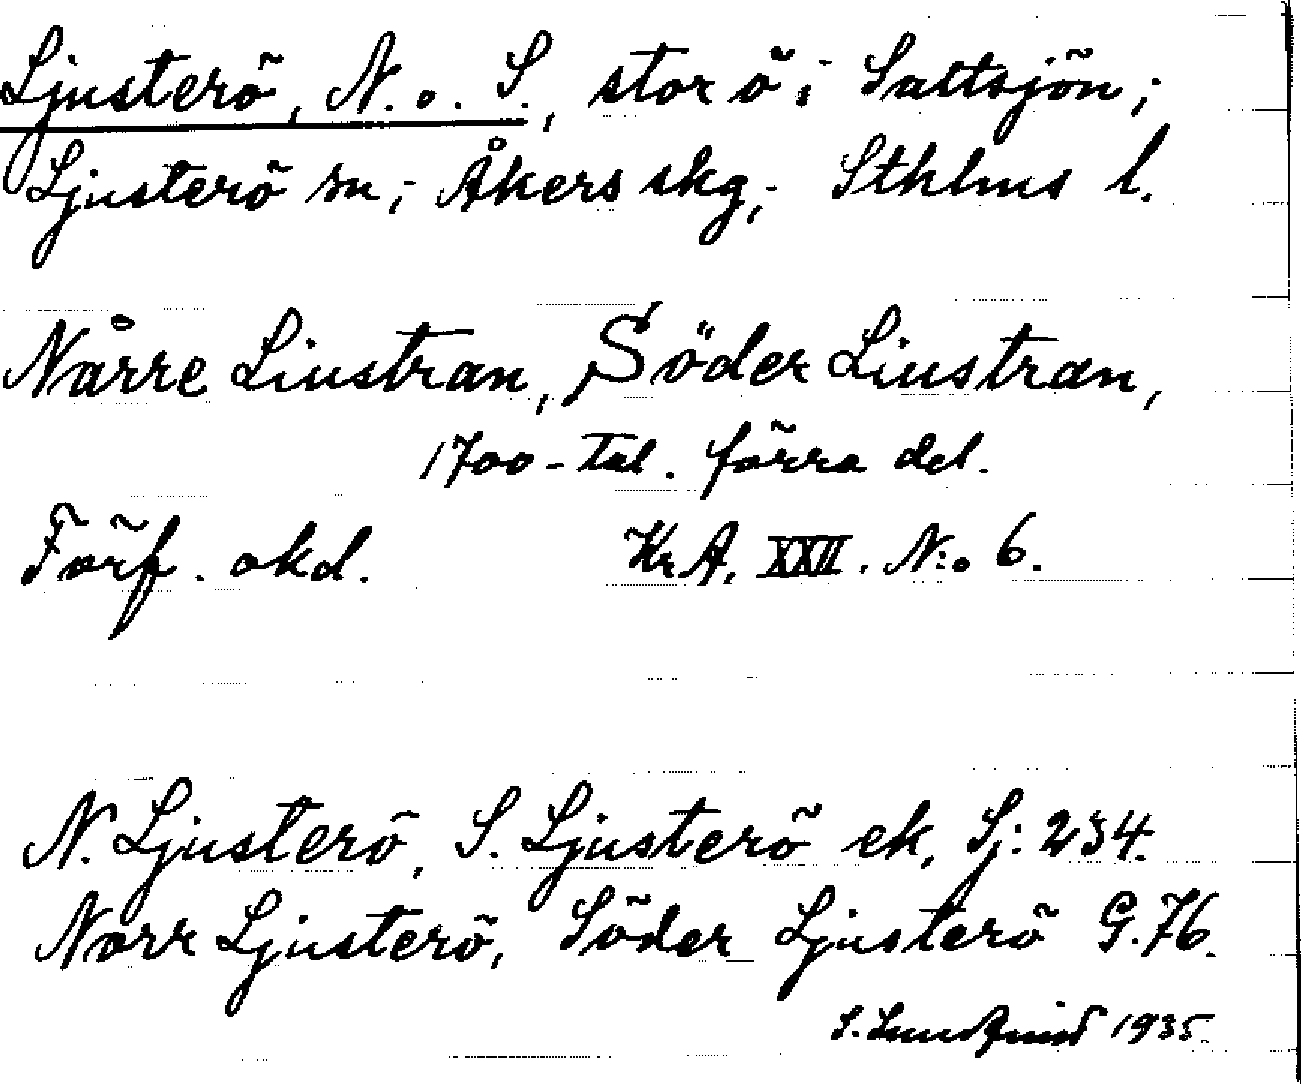 Ljusterö, N. o. S., stor ö i Saltsjön;
Ljusterö sn; Åkers skg; Sthlms l.
Nårre Liustran, Söder Liustran,
1700-tal. förra del.
Förf. okd. Kr A. XXII. N:o 6.
N. Ljusterö, S. Ljusterö ek. Sj: 234.
Norr Ljusterö, Söder Ljusterö G. 76.
S. Lundqvist 1935.